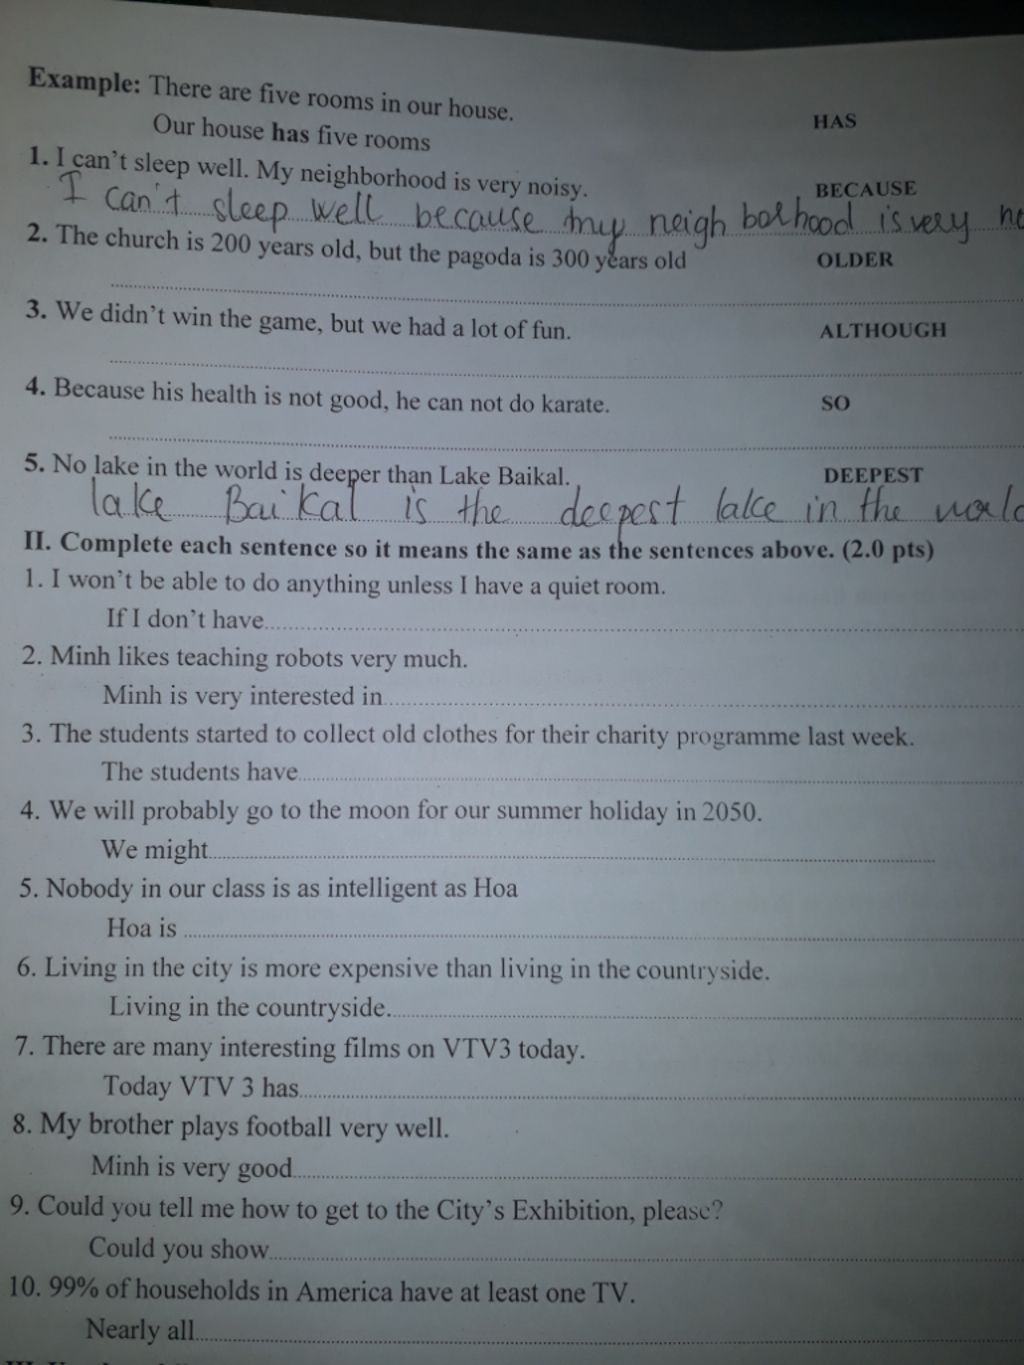 Example: There are five rooms in our house.
Our house has five rooms HAS
1. I can't sleep well. My neighborhood is very noisy. BECAUSE
I can't sleep well because my neigh borhood is very
2. The church is 200 years old, but the pagoda is 300 years old OLDER
3. We didn't win the game, but we had a lot of fun. ALTHOUGH
4. Because his health is not good, he can not do karate. SO
5. No lake in the world is deeper than Lake Baikal. DEEPEST
lake Baikal is the deepest lake in the world
II. Complete each sentence so it means the same as the sentences above. (2.0 pts)
1. I won't be able to do anything unless I have a quiet room.
If I don't have
2. Minh likes teaching robots very much.
Minh is very interested in
3. The students started to collect old clothes for their charity programme last week.
The students have
4. We will probably go to the moon for our summer holiday in 2050.
We might
5. Nobody in our class is as intelligent as Hoa
Hoa is
6. Living in the city is more expensive than living in the countryside.
Living in the countryside.
7. There are many interesting films on VTV3 today.
Today VTV 3 has
8. My brother plays football very well.
Minh is very good
9. Could you tell me how to get to the City's Exhibition, please?
Could you show
10. 99% of households in America have at least one TV.
Nearly all